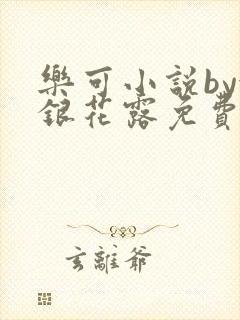 樂可小說by
銀花露免費
玄離爺